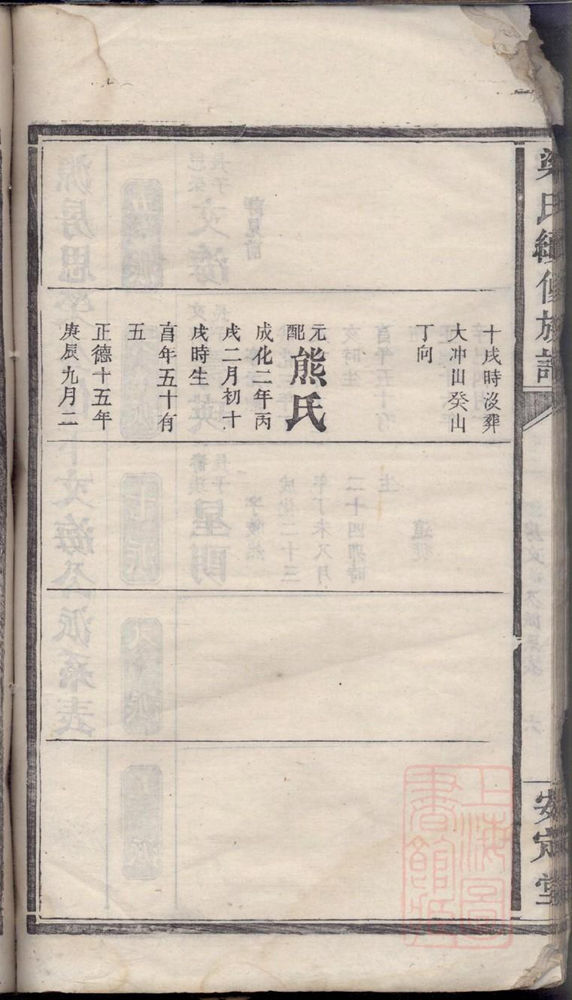 梁氏續修族譜
安定堂
十戌時沒葬
大冲山癸山
丁向
元配熊氏
成化二年丙
戌二月初十
戌時生
享年五十有
五
正德十五年
庚辰九月二
上海圖書館藏